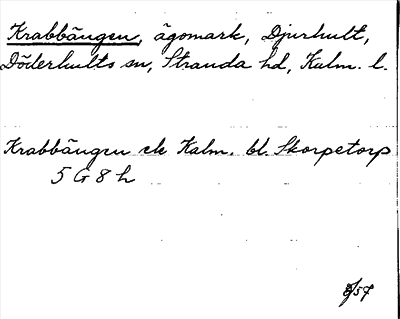 Krabbängen, ägomark, Djurhult,
Döderhults sn, Stranda hd, Kalm. l.
Krabbängen ek Kalm. bl. Skorpetorp
5 G 8 h